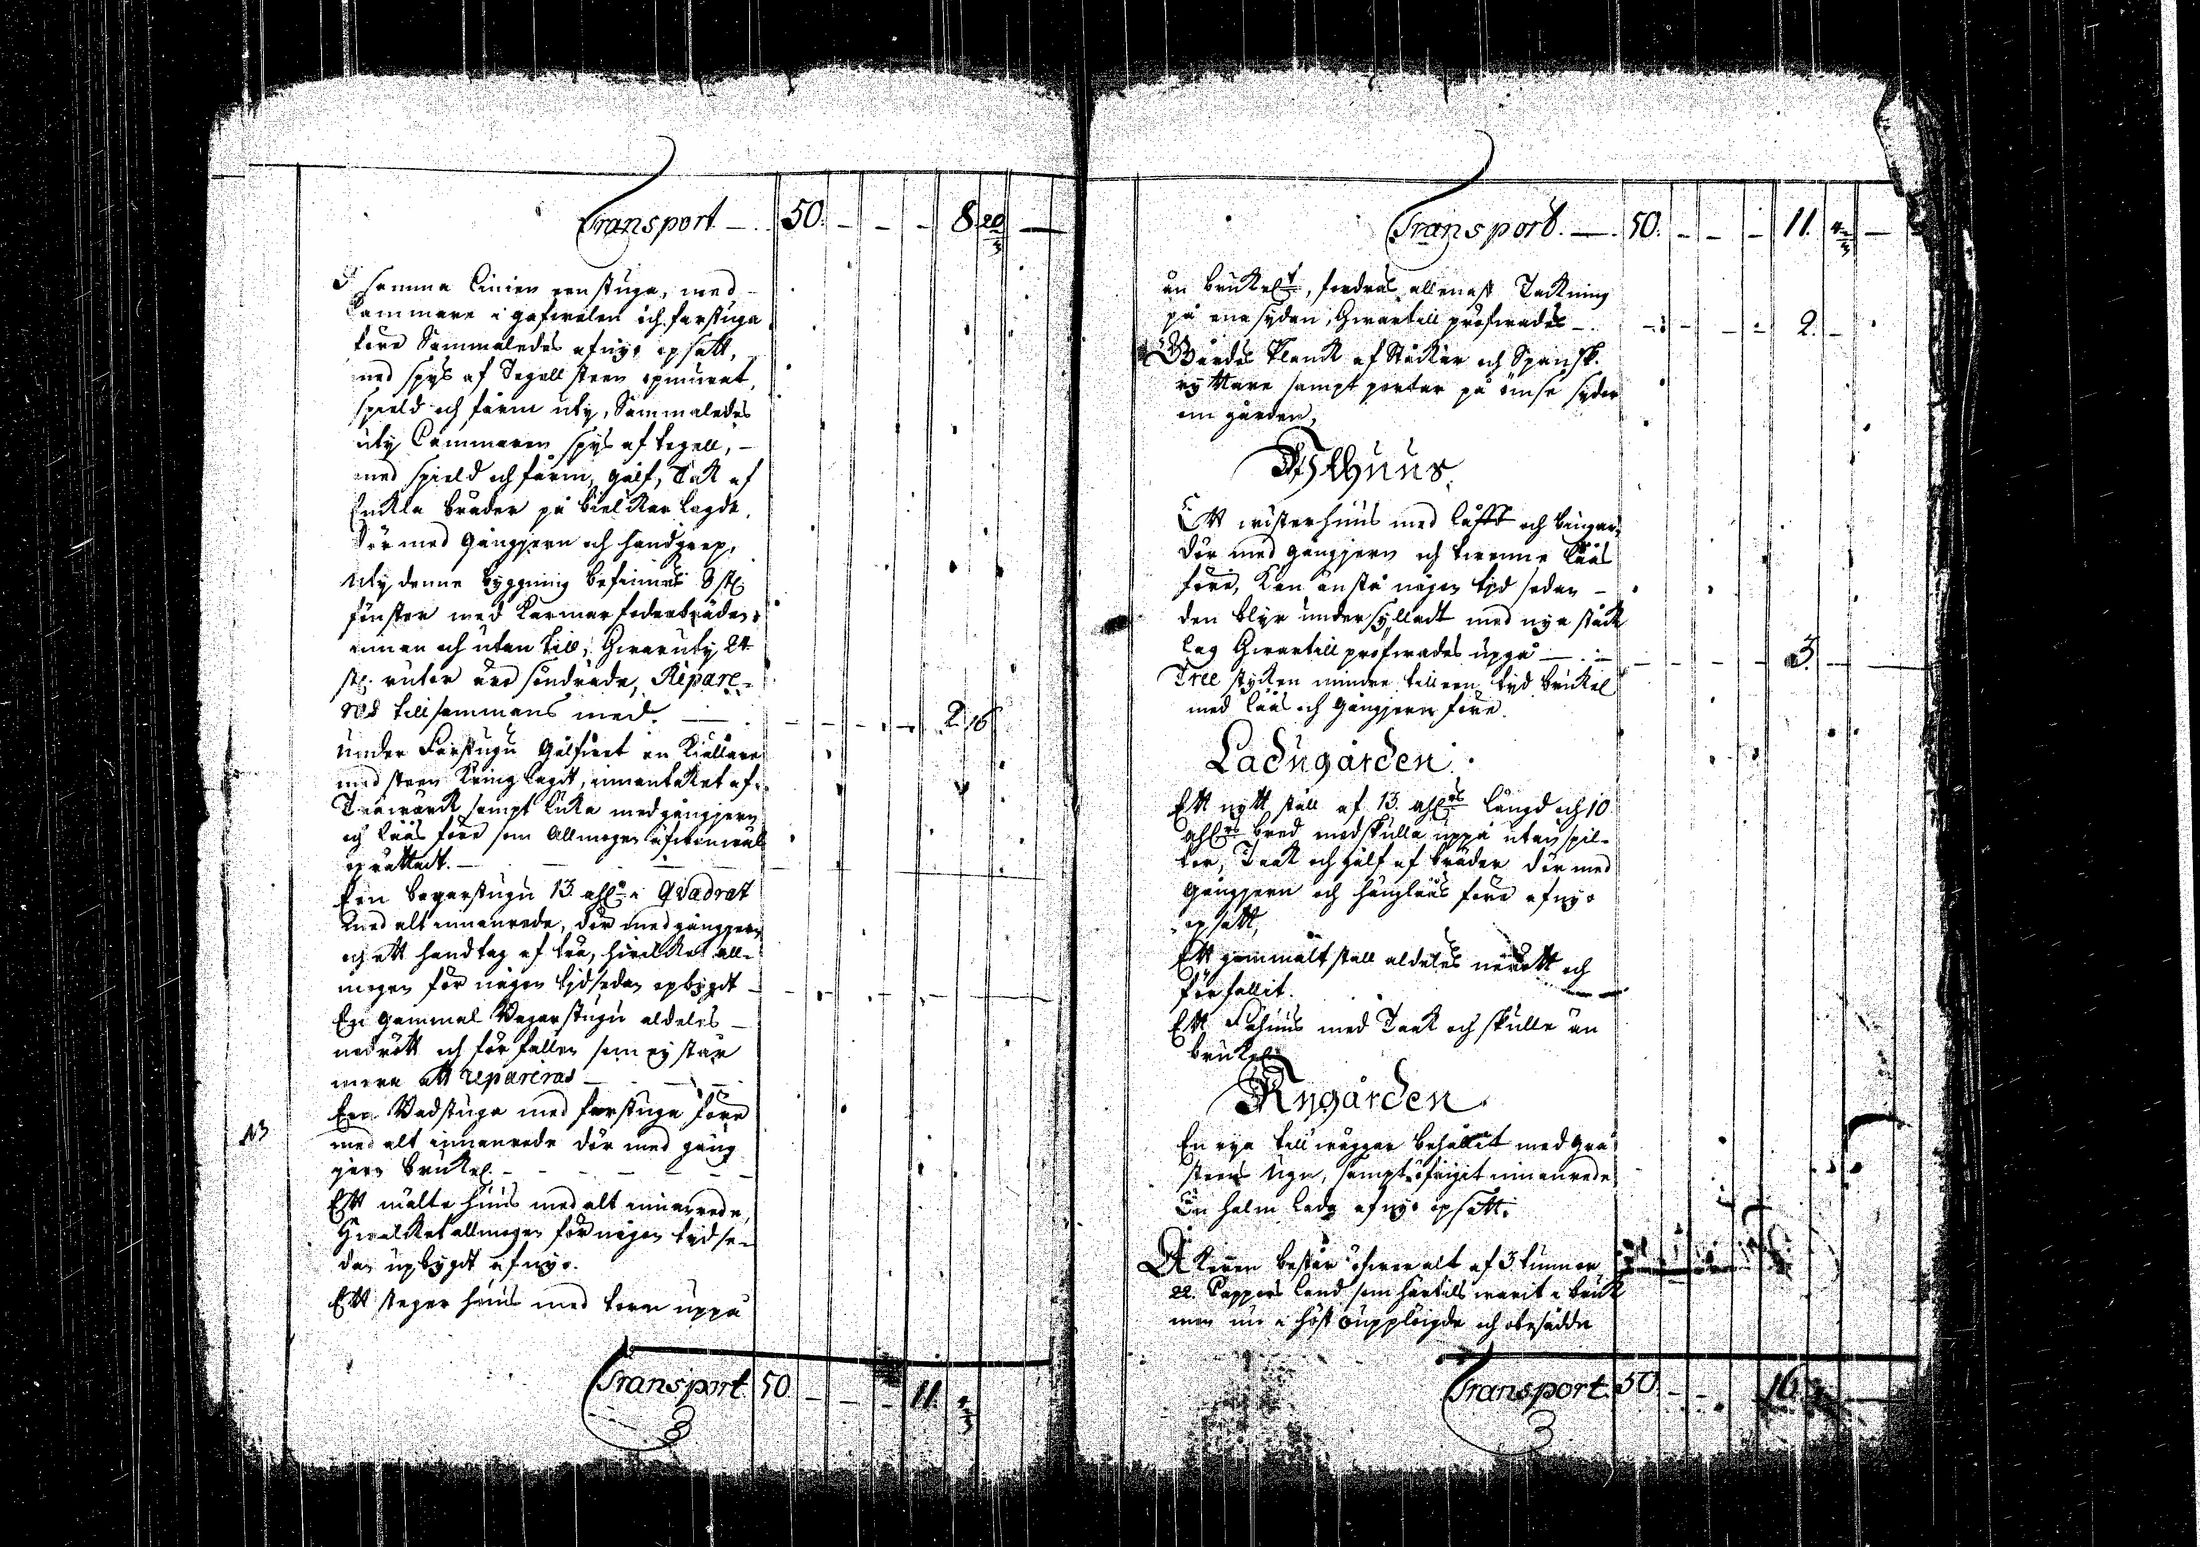 Transport — 50. – – – 8 20 2/3 —
I samma Linien een stuga, med
Cammare i gafwelen och farstuga
före Sammaledes af nyo opsatt,
med spys af Tegell steen opmurat,
spield och järn uty, Sammaledes
uty Cammaren spys af tegell, –
med spield och järn, gålf, Tak af
Enkla bräder på bielkar lagde,
Dör med gångjern och handgrep,
Uty denne byggning befinnes 8 st:
fönster med Karmar foderbräden
innan och utan till, Hwaruty 24
st: rutor äro söndrade, Repare-
ras tillsammans med. — 2 16
Under Farstugu Gålfwet en Kiellare
med steen Kringlagdt, innantaket af
Träwärck sampt luka med gångjern
och låås före som Allmogen
oprättadt. —
Een bagarstugu 13. ahl:r i Qvadrat
med alt innanrede, dör med gångjern
och ett handtag af trä, hwilket all-
mogen för någon tjd sedan opbygdt
En gammal Bagarstugu aldeles –
nedrött och förfallen som ej står
mera att repareras
NB
Een Badstuga med farstuga före
med alt innanrede dör med gång
jern brukel. –
Ett mälte huus med alt innanrede,
Hwilket allmogen för någon tjd se-
dan upbygdt af nyo.
Ett steger huus med torn uppå
Transport 50 – – – 11. 4 2/3
Transport. — 50. – – – 11. 4 2/3 —
än brukel:t, fordras allenast Täckning
på ena sydan, Hwartill pröfwades – 2. –
Gårdes Planck af Stäckar och Spansk.
ryttare sampt portar på ömse sydor
om gården,
Uthuus.
Ett wisterhuus med låfft och bingar,
Dör med gångjern och twenne låås
före, Kan än stå någon tjd sedan –
den blyr undersylladt med nya stock
lag Hwartill pröfwades upgå — 3. —
Tree stycken mindre till een tyd brukel
med låås och Gångjern före.
Ladugården.
Ett nytt stall af 13. ahl:rs långd och 10
ahl:rs bred med skulla uppå utan spil-
tor, Taak och gålf af bräder dör med
Gångjern och hänglåås före af nyo
opsatt,
Ett gammalt stall aldeles nedrött och
förfallit.
Ett Fähuus med Taak och skulle än
brukel:t
Rygården.
En rya till wäggar behållit med grå
steens Ugn, sampt öfrigit innanrede
En halm Lada af nyo opsatt.
Åkeren består öfwer alt af 3 tunnor
22. Cappers Land som härtils warit i bruk
men nu i höst oupplöigde och obesådde
Transport. 50. – – 16.